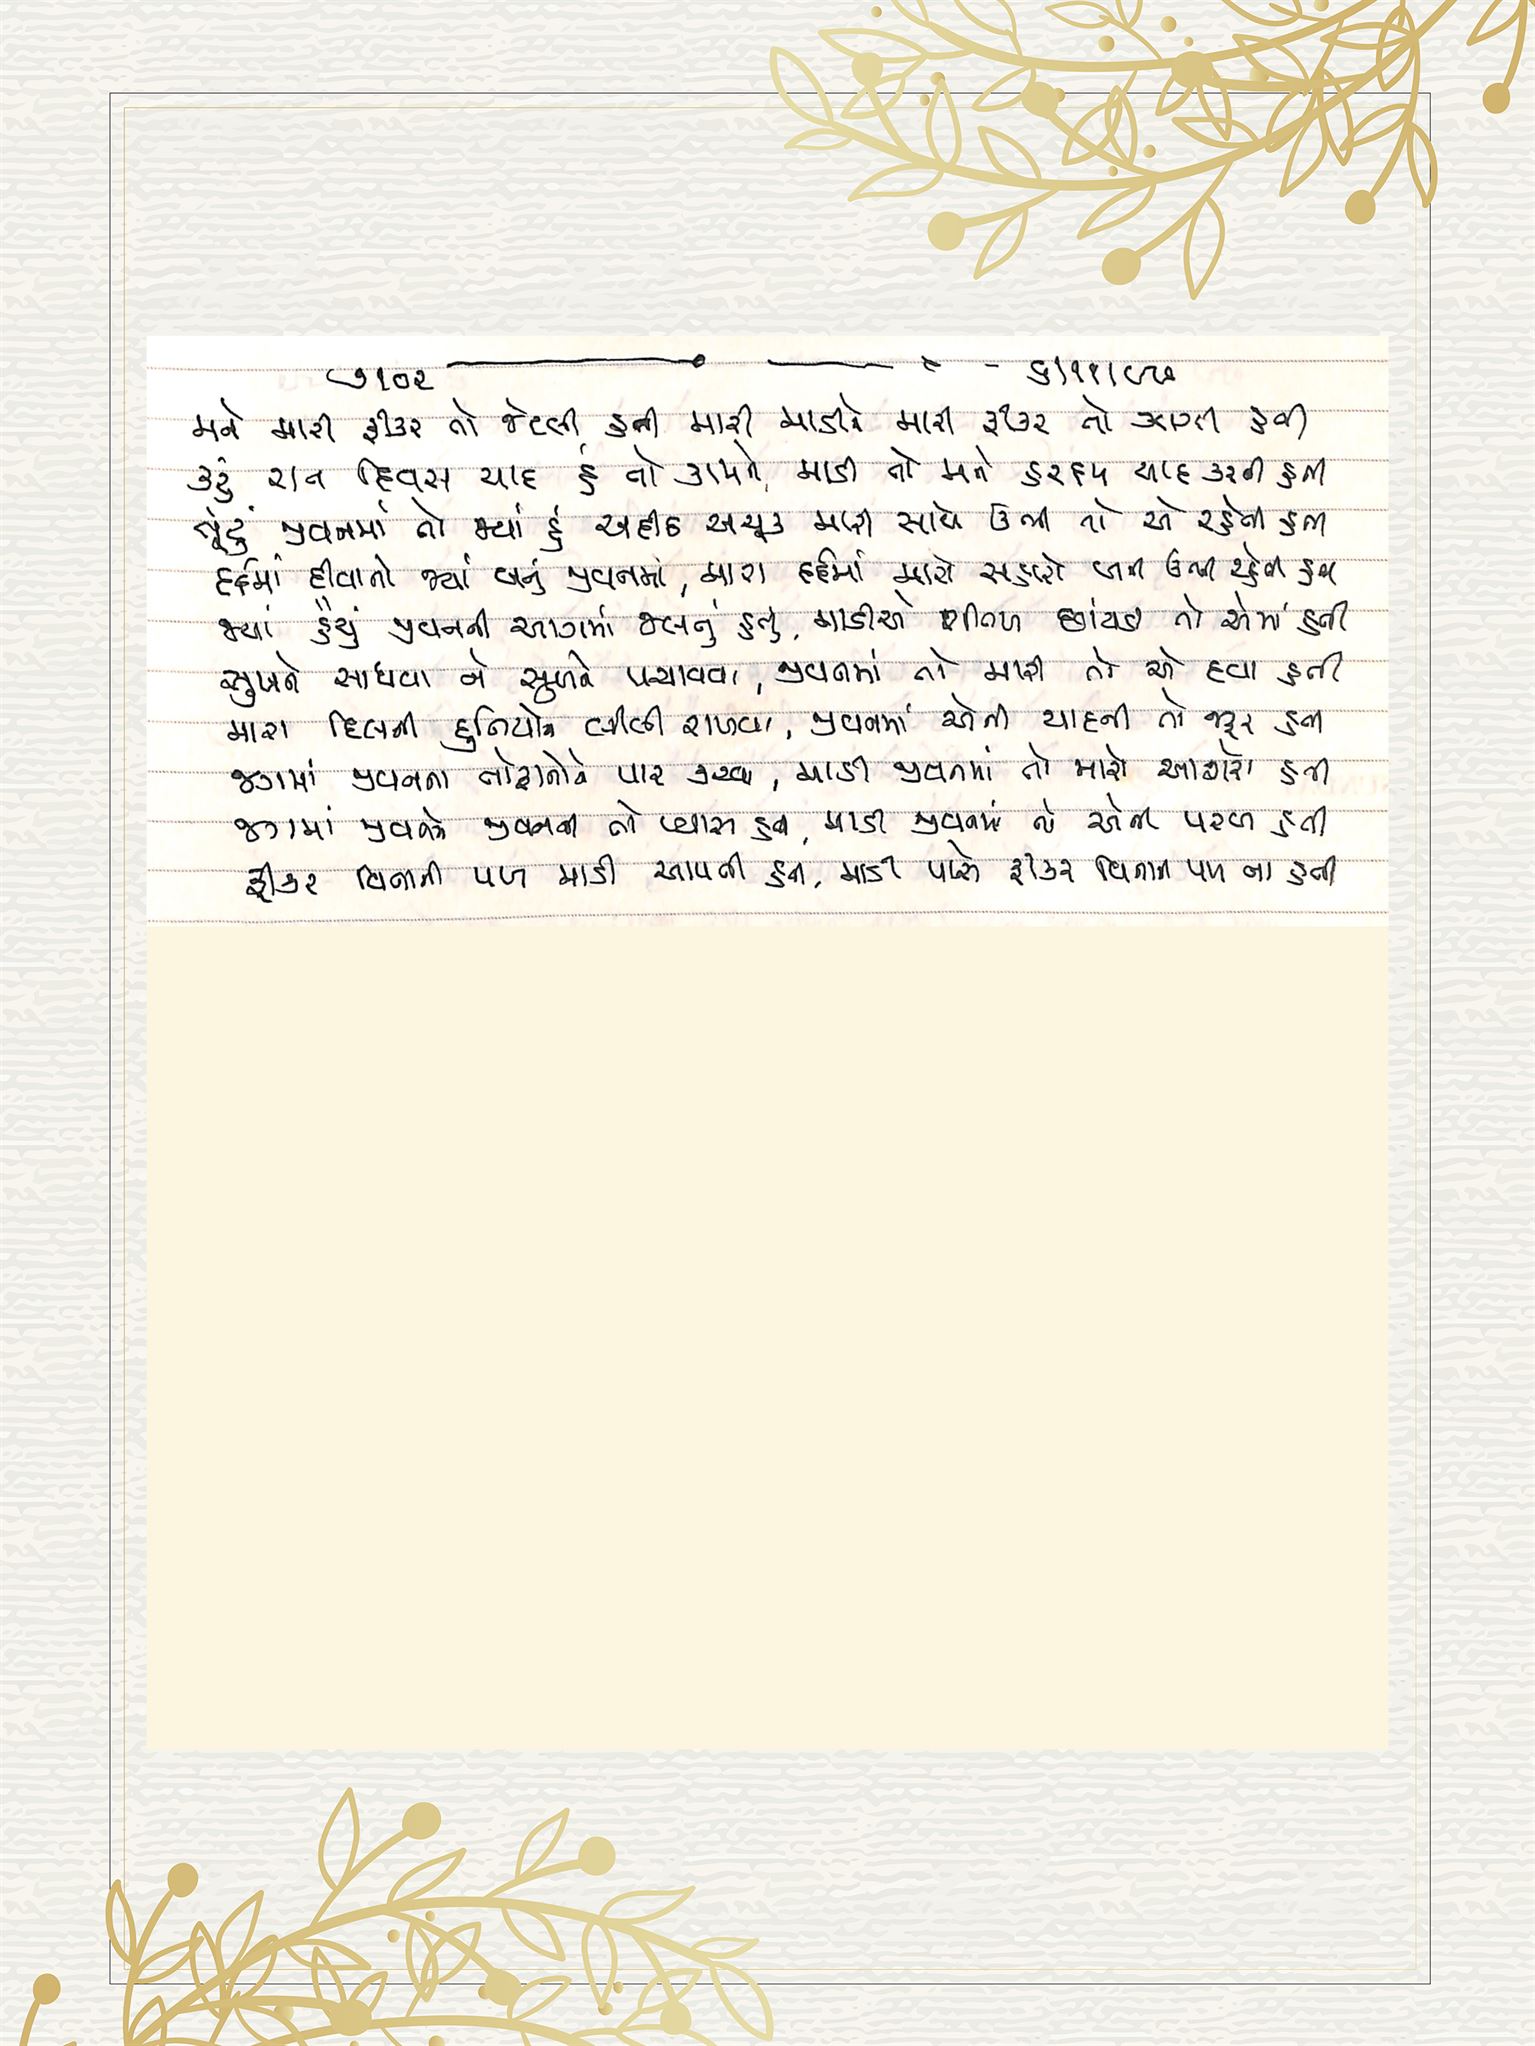 ૭૧૦૨ ૬/૧૧/૯૭
મને મારી ફીકર તો જેટલી હતી મારી માડીને મારી ફીકર તો ઝાઝી હતી
કરું રાત દિવસ યાદ હું તો કામને, માડી તો મને હરદમ યાદ કરતી હતી
તૂટું જીવનમાં તો જ્યાં હું અહીંઠ અચૂક મારી સાથે ઊભી તો એ રહેતી હતી
દર્દમાં દીવાનો જ્યાં બનું જીવનમાં, મારા દર્દમાં મારો સહારો બની ઊભી રહેતી હતી
જ્યાં હૈયું જીવનની આગમાં જલતું હતું, માડીએ શીતળ છાંયડી તો એમાં હતી
સુખને સાધવા ને સુખને પચાવવા, જીવનમાં તો મારી તો એ દવા હતી
મારા દિલની દુનિયાને ખીલી રાખવા, જીવનમાં એની યાદની તો જરૂર હતી
જગમાં જીવનના તોફાનોને પાર કરવા, માડી જીવનમાં તો મારો આશરો હતી
જગમાં જીવને જીવનની તો પ્યાસ હતી, માડી જીવનમાં તો એની પરબ હતી
ફીકર વિનાની પળ માડી આપતી હતી, માડી પાસે ફીકર વિનાની પળ ના હતી